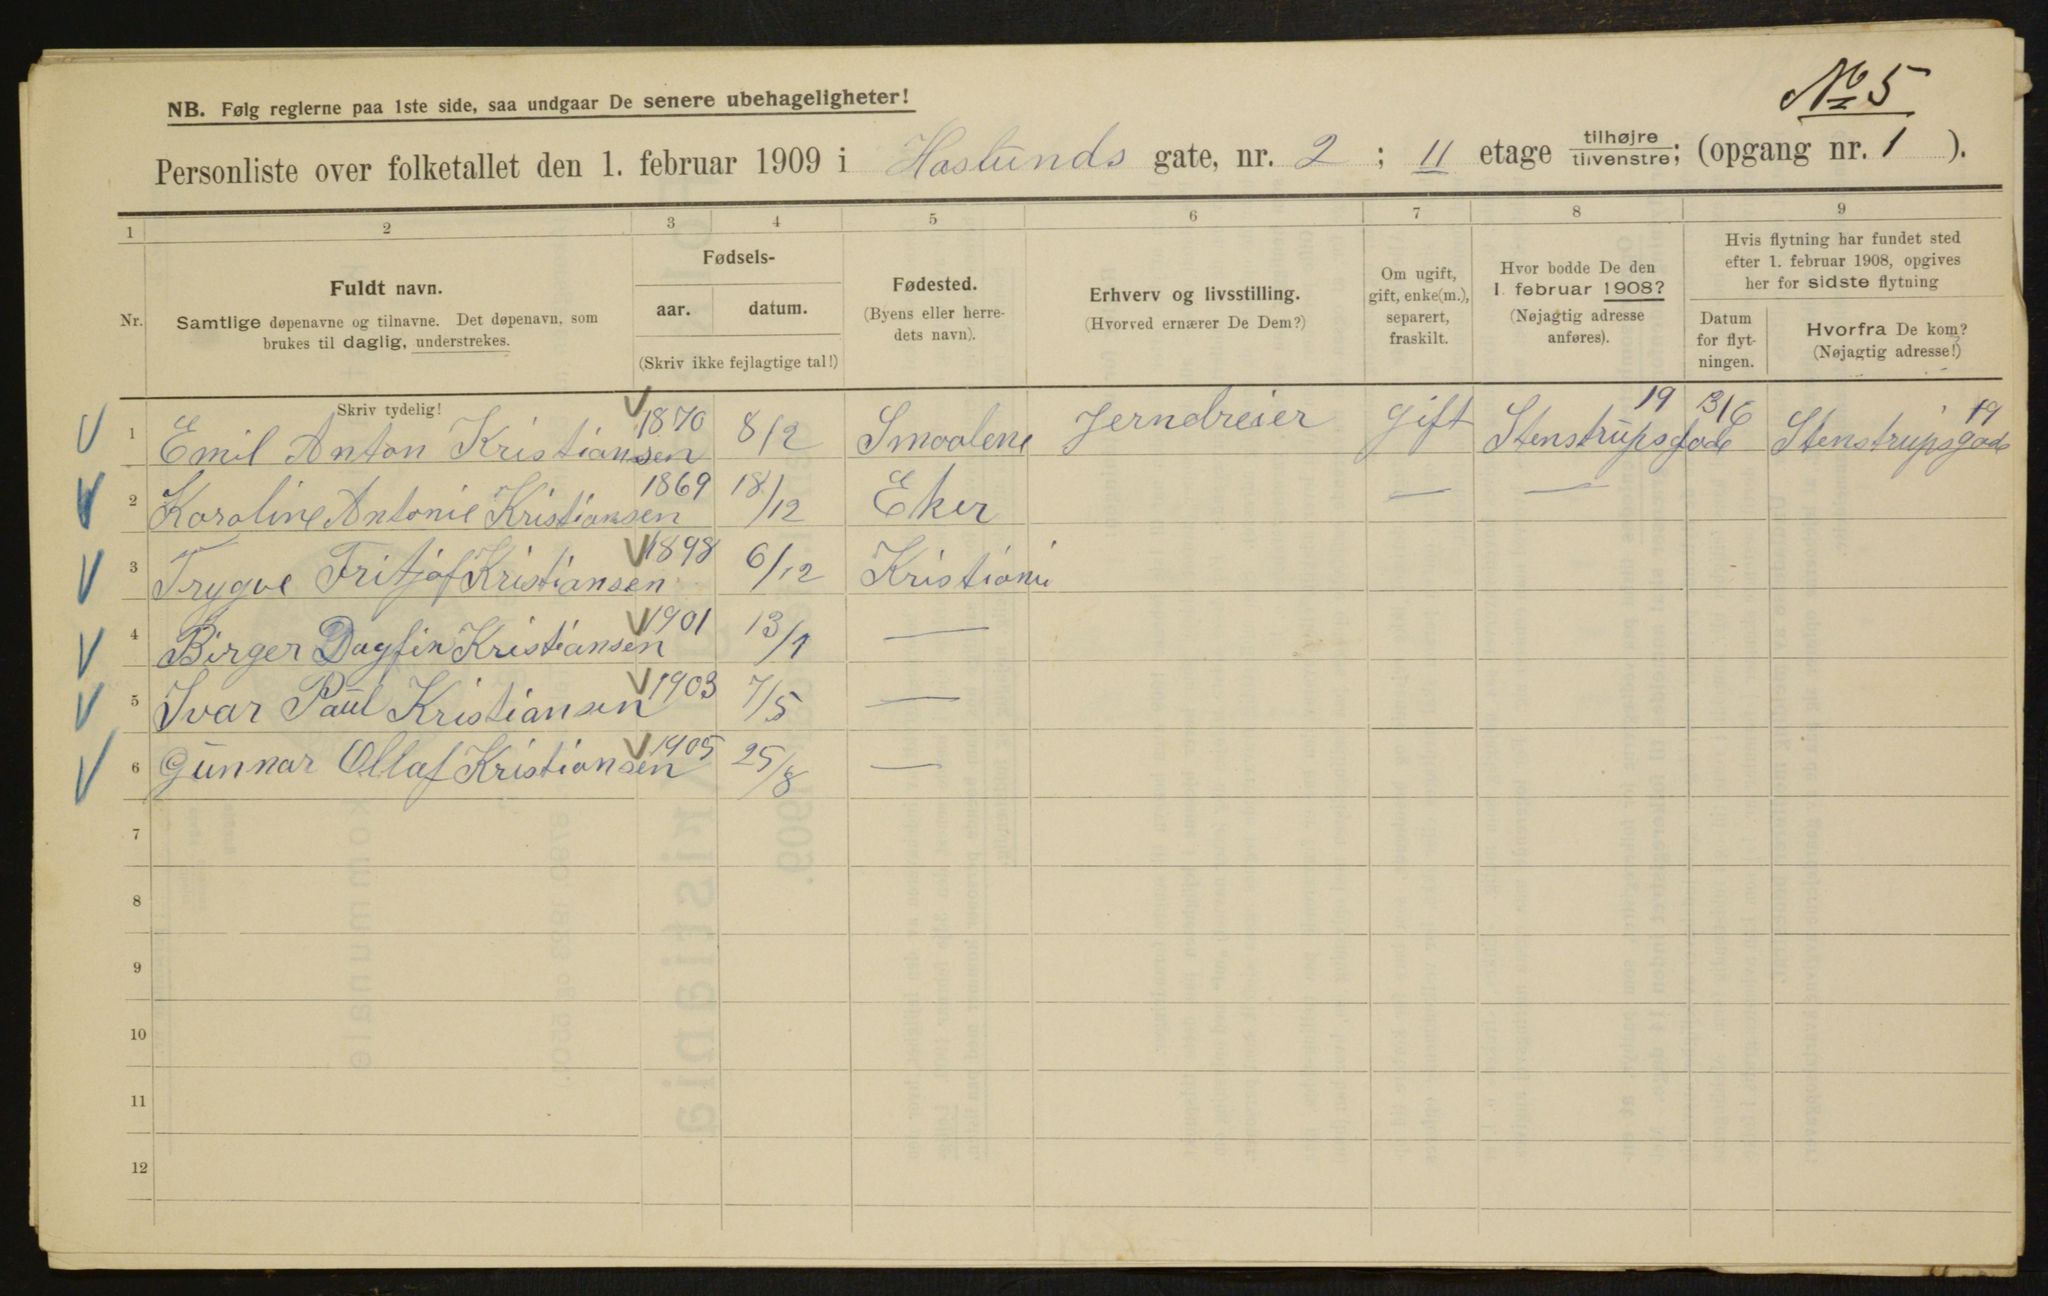 No 5
NB. Følg reglerne paa 1ste side, saa undgaar De senere ubehageligheter!
Personliste over folketallet den 1. februar 1909 i Haslunds gate, nr. 2 ; 11 etage tilhøjre / tilvenstre; (opgang nr. 1 ).
1 2 3 4 5 6 7 8 9
Nr.
Fuldt navn.
Samtlige døpenavne og tilnavne. Det døpenavn, som
brukes til daglig, understrekes.
Fødsels-
aar. datum.
(Skriv ikke fejlagtige tal!)
Fødested.
(Byens eller herre-
dets navn).
Erhverv og livsstilling.
(Hvorved ernærer De Dem?)
Om ugift,
gift, enke(m.),
separert,
fraskilt.
Hvor bodde De den
1. februar 1908?
(Nøjagtig adresse
anføres).
Hvis flytning har fundet sted
efter 1. februar 1908, opgives
her for sidste flytning
Datum
for flyt-
ningen.
Hvorfra De kom?
(Nøjagtig adresse!)
Skriv tydelig!
1 Emil Anton Kristiansen 1870 8/2 Smaalene Jerndreier gift Stenstrupsgade 19 Stenstrupsgade 19
2 Karoline Antonie Kristiansen 1869 18/12 Eker — —
3 Trygve Fritjof Kristiansen 1898 6/12 Kristiani
4 Birger Dagfin Kristiansen 1901 13/1 —
5 Ivar Paul Kristiansen 1903 7/5 —
6 Gunnar Ollaf Kristiansen 1905 25/8 —
7
8
9
10
11
12